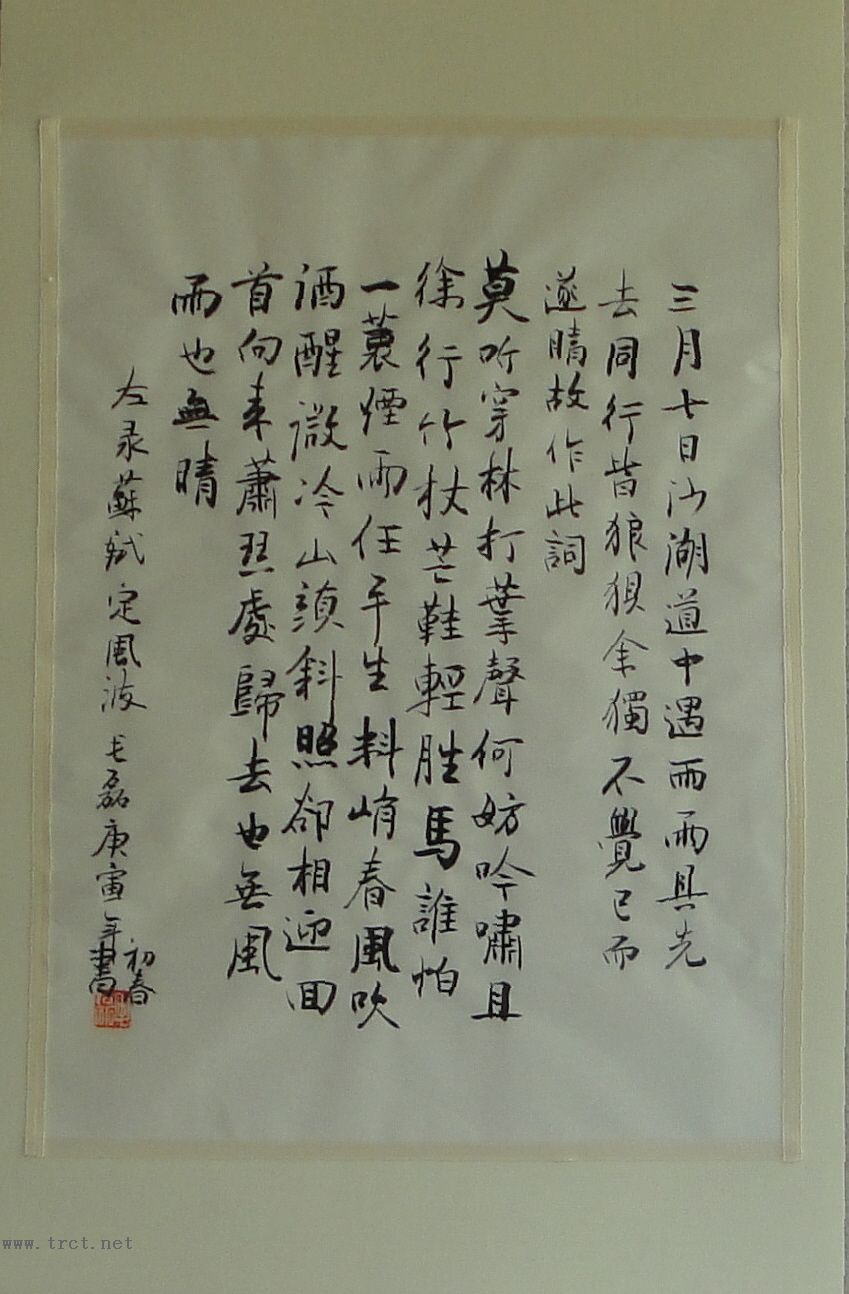 三月七日沙湖道中遇雨雨具先
去同行皆狼狽余獨不覺已而
遂晴故作此詞
莫听穿林打葉聲何妨吟嘯且
徐行竹杖芒鞋輕胜馬誰怕
一蓑煙雨任平生料峭春風吹
酒醒微冷山頭斜照卻相迎回
首向來蕭瑟處歸去也無風
雨也無晴
左录蘇軾定風波
磊庚寅年初春書
www.trct.net